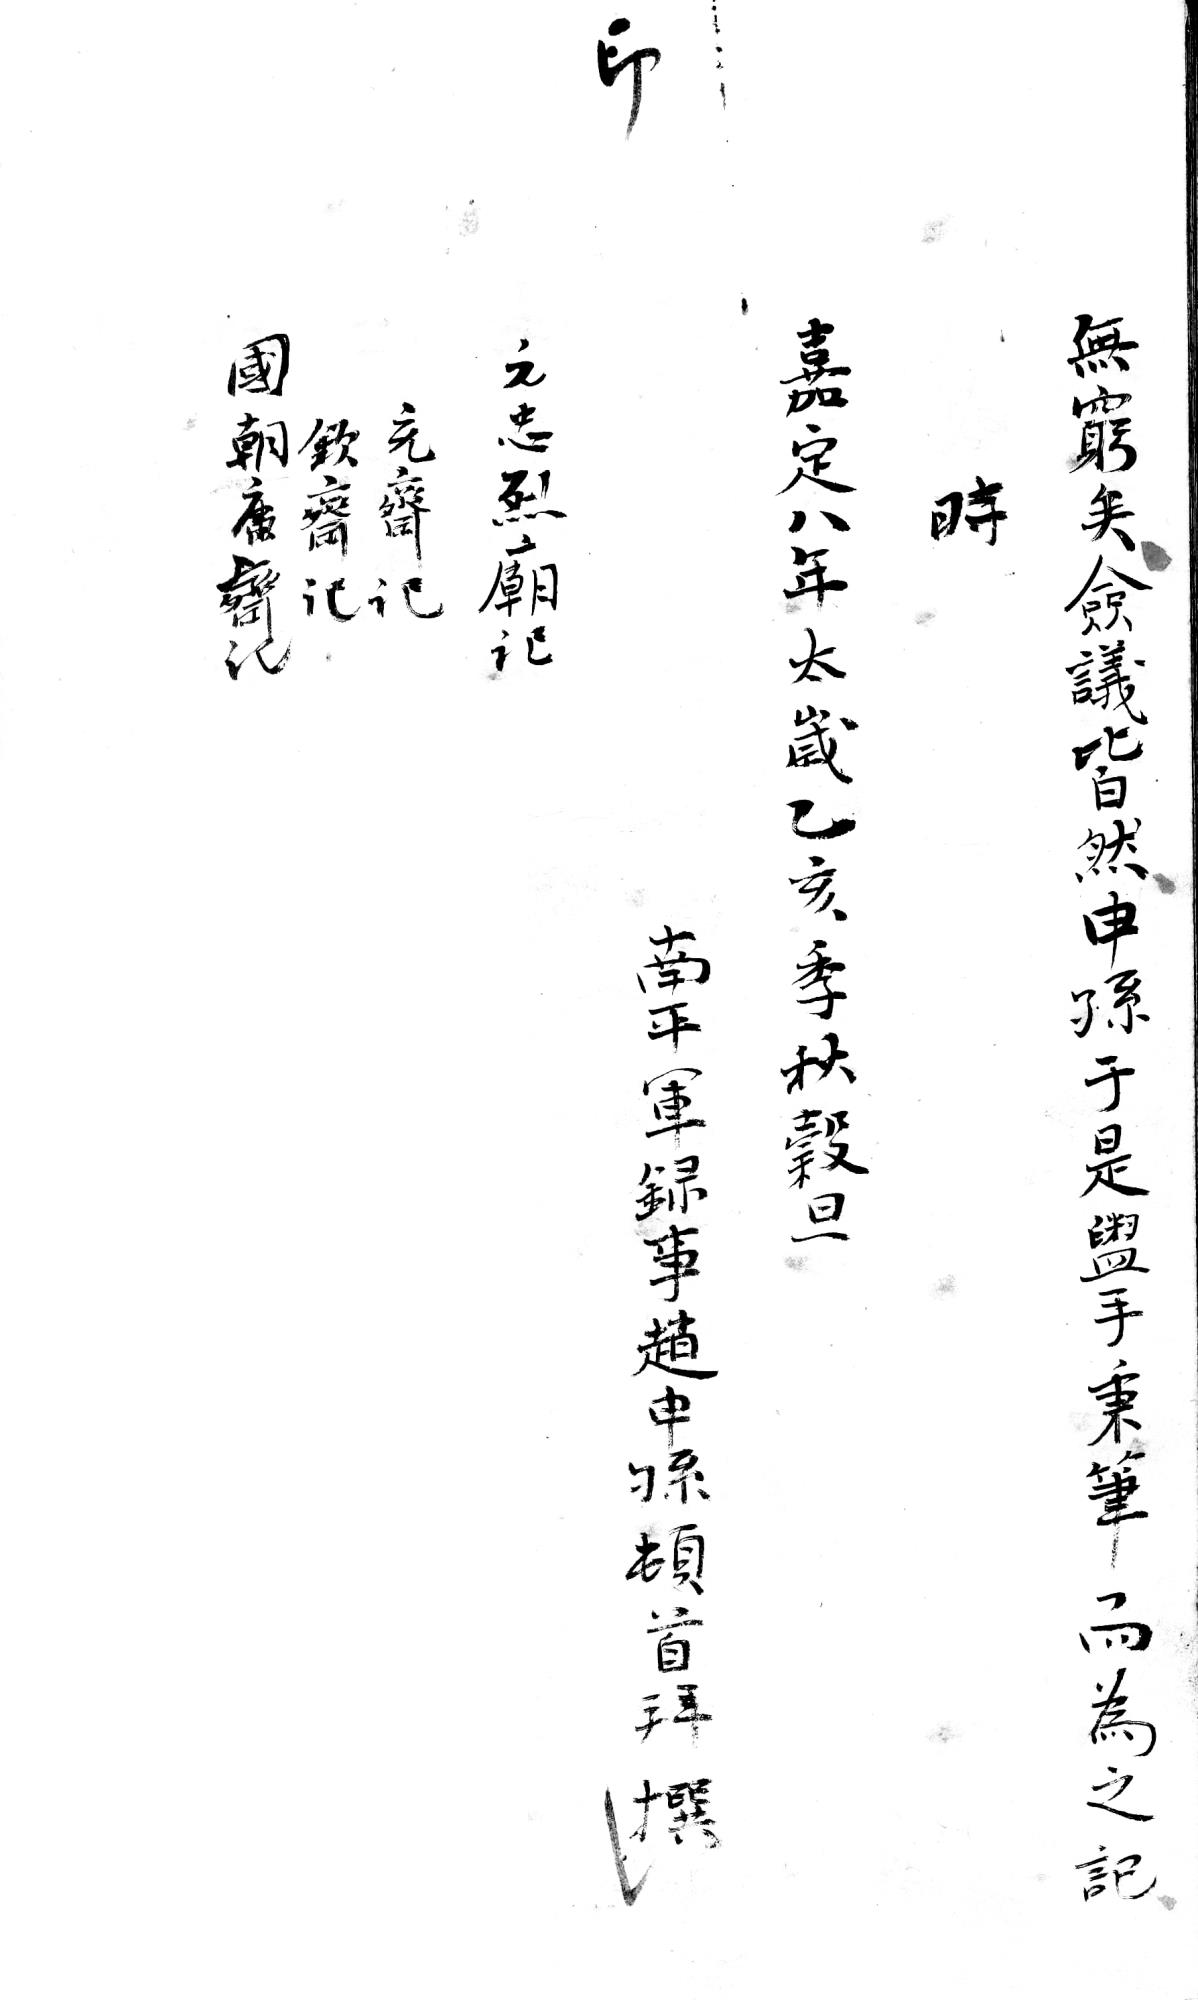 無窮矣僉議皆然申孫于是盥手秉筆而為之記
時
嘉定八年太歲乙亥季秋穀旦
印
南平軍録事趙申孫頓首拜撰
元忠烈廟記
充齋記
欽齋記
國朝庸齋記